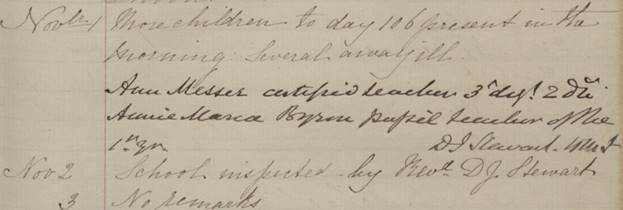 Novbr 1 More children to day 106 present in the
morning. Several away ill.
Ann Messer certified teacher 3rd dgr. 2 Div
Annie Maria Byron pupil teacher of the
1st yr. D J Stewart
Nov 2 School inspected by Revd. D J Stewart
3 No remarks